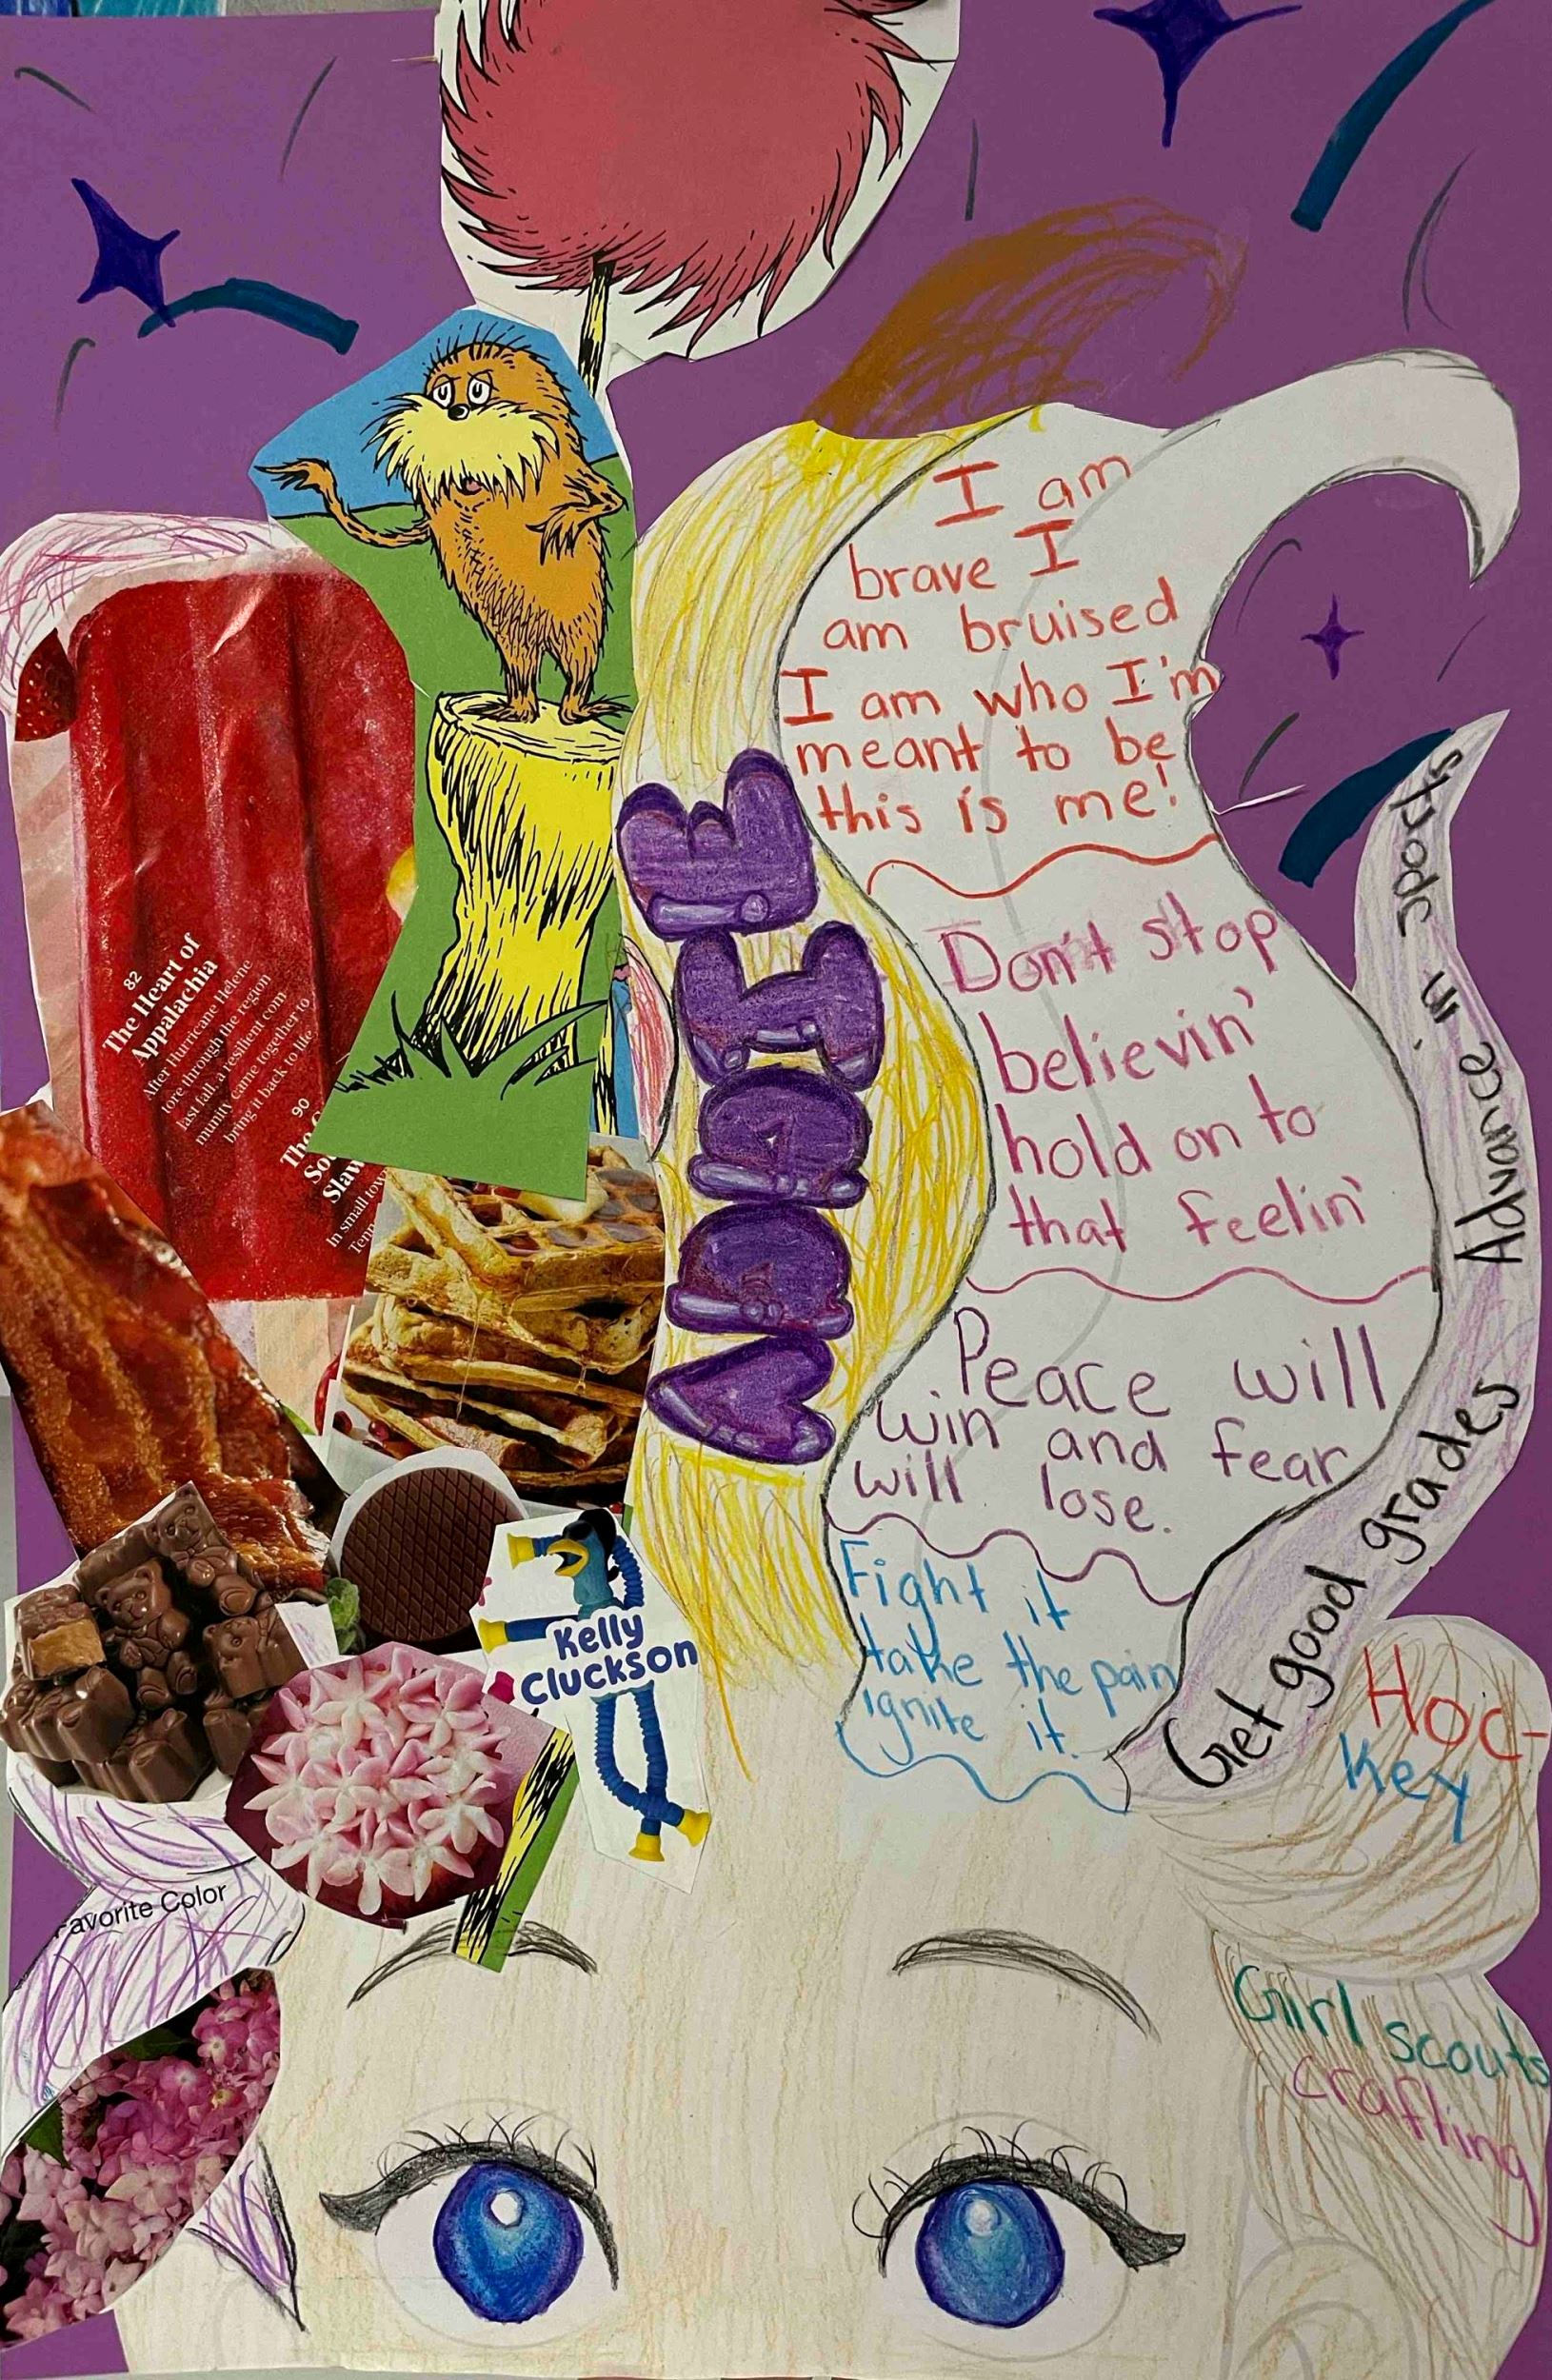 The Heart of
Appalachia
82
After Hurricane Helene
tore through the region
last fall, a resilient com
munity came together to
bring it back to life
90
In small
Tenn
ADDIE
I am
brave I
am bruised
I am who I'm
meant to be
this is me!
Don't stop
believin'
hold on to
that feelin'
Peace will
win and fear
will lose.
Fight it
take the pain
ignite it.
Get good grades Advance in sports
Hoc-
key
Girl scouts
crafting
Kelly
Cluckson
Favorite Color